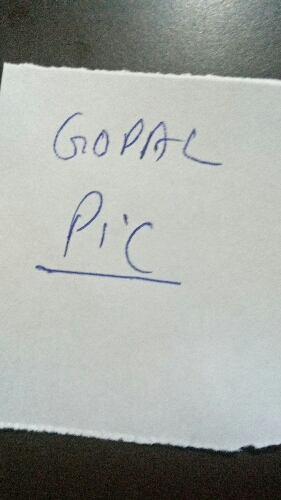 GOPAL
Pic